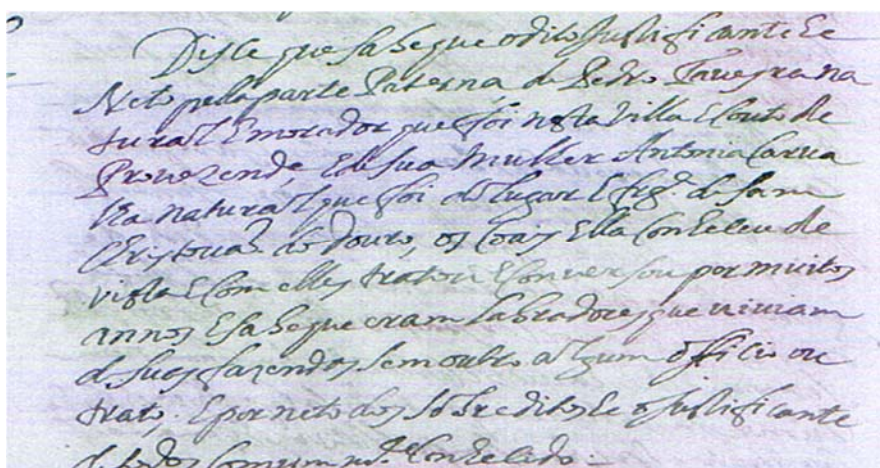 Disse que sabe que o dito Justificante he
Neto pella parte Paterna de Pedro Taueyra na
tural E morador que foi nesta Villa E Couto de
Prouezende E de sua Mulher Antonia Carua
lha natural que foi do lugar E frg.ª de sam
Christouaõ do Douro, os Coais Ella Conheceu de
vista E Com elles tratou E Conuersou por muitos
annos E sabe que eram labradores que uiuiam
de suas fazendas sem outro algum officio ou
trato. E por neto dos sobreditos he o Justificante
de todos Comum m.te Conhecido.